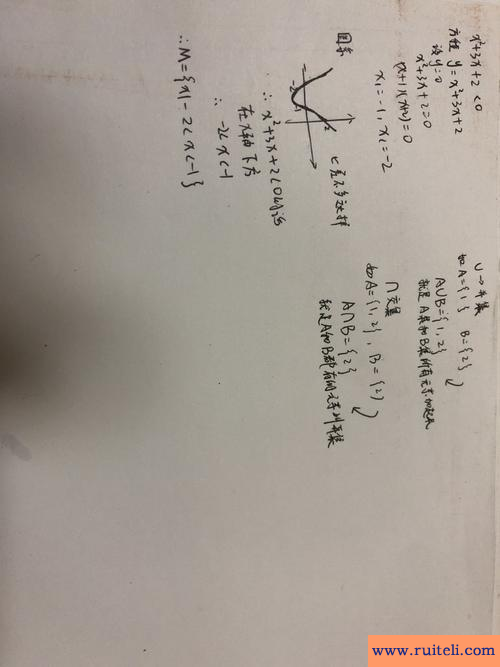 x²+3x+2<0
方程 y=x²+3x+2
设y=0
x²+3x+2=0
(x+1)(x+2)=0
x₁=-1, x₂=-2
图象
-2
差不多这样
∴ x²+3x+2<0
在x轴下方
∴ -2<x<-1
∴M={x|-2<x<-1}
∪→并集
如A={1} B={2}
A∪B={1,2}
就是A集和B集所有元素加起来
∩交集
如A={1,2}, B={2}
A∩B={2}
就是A和B都有的元素
www.ruiteli.com